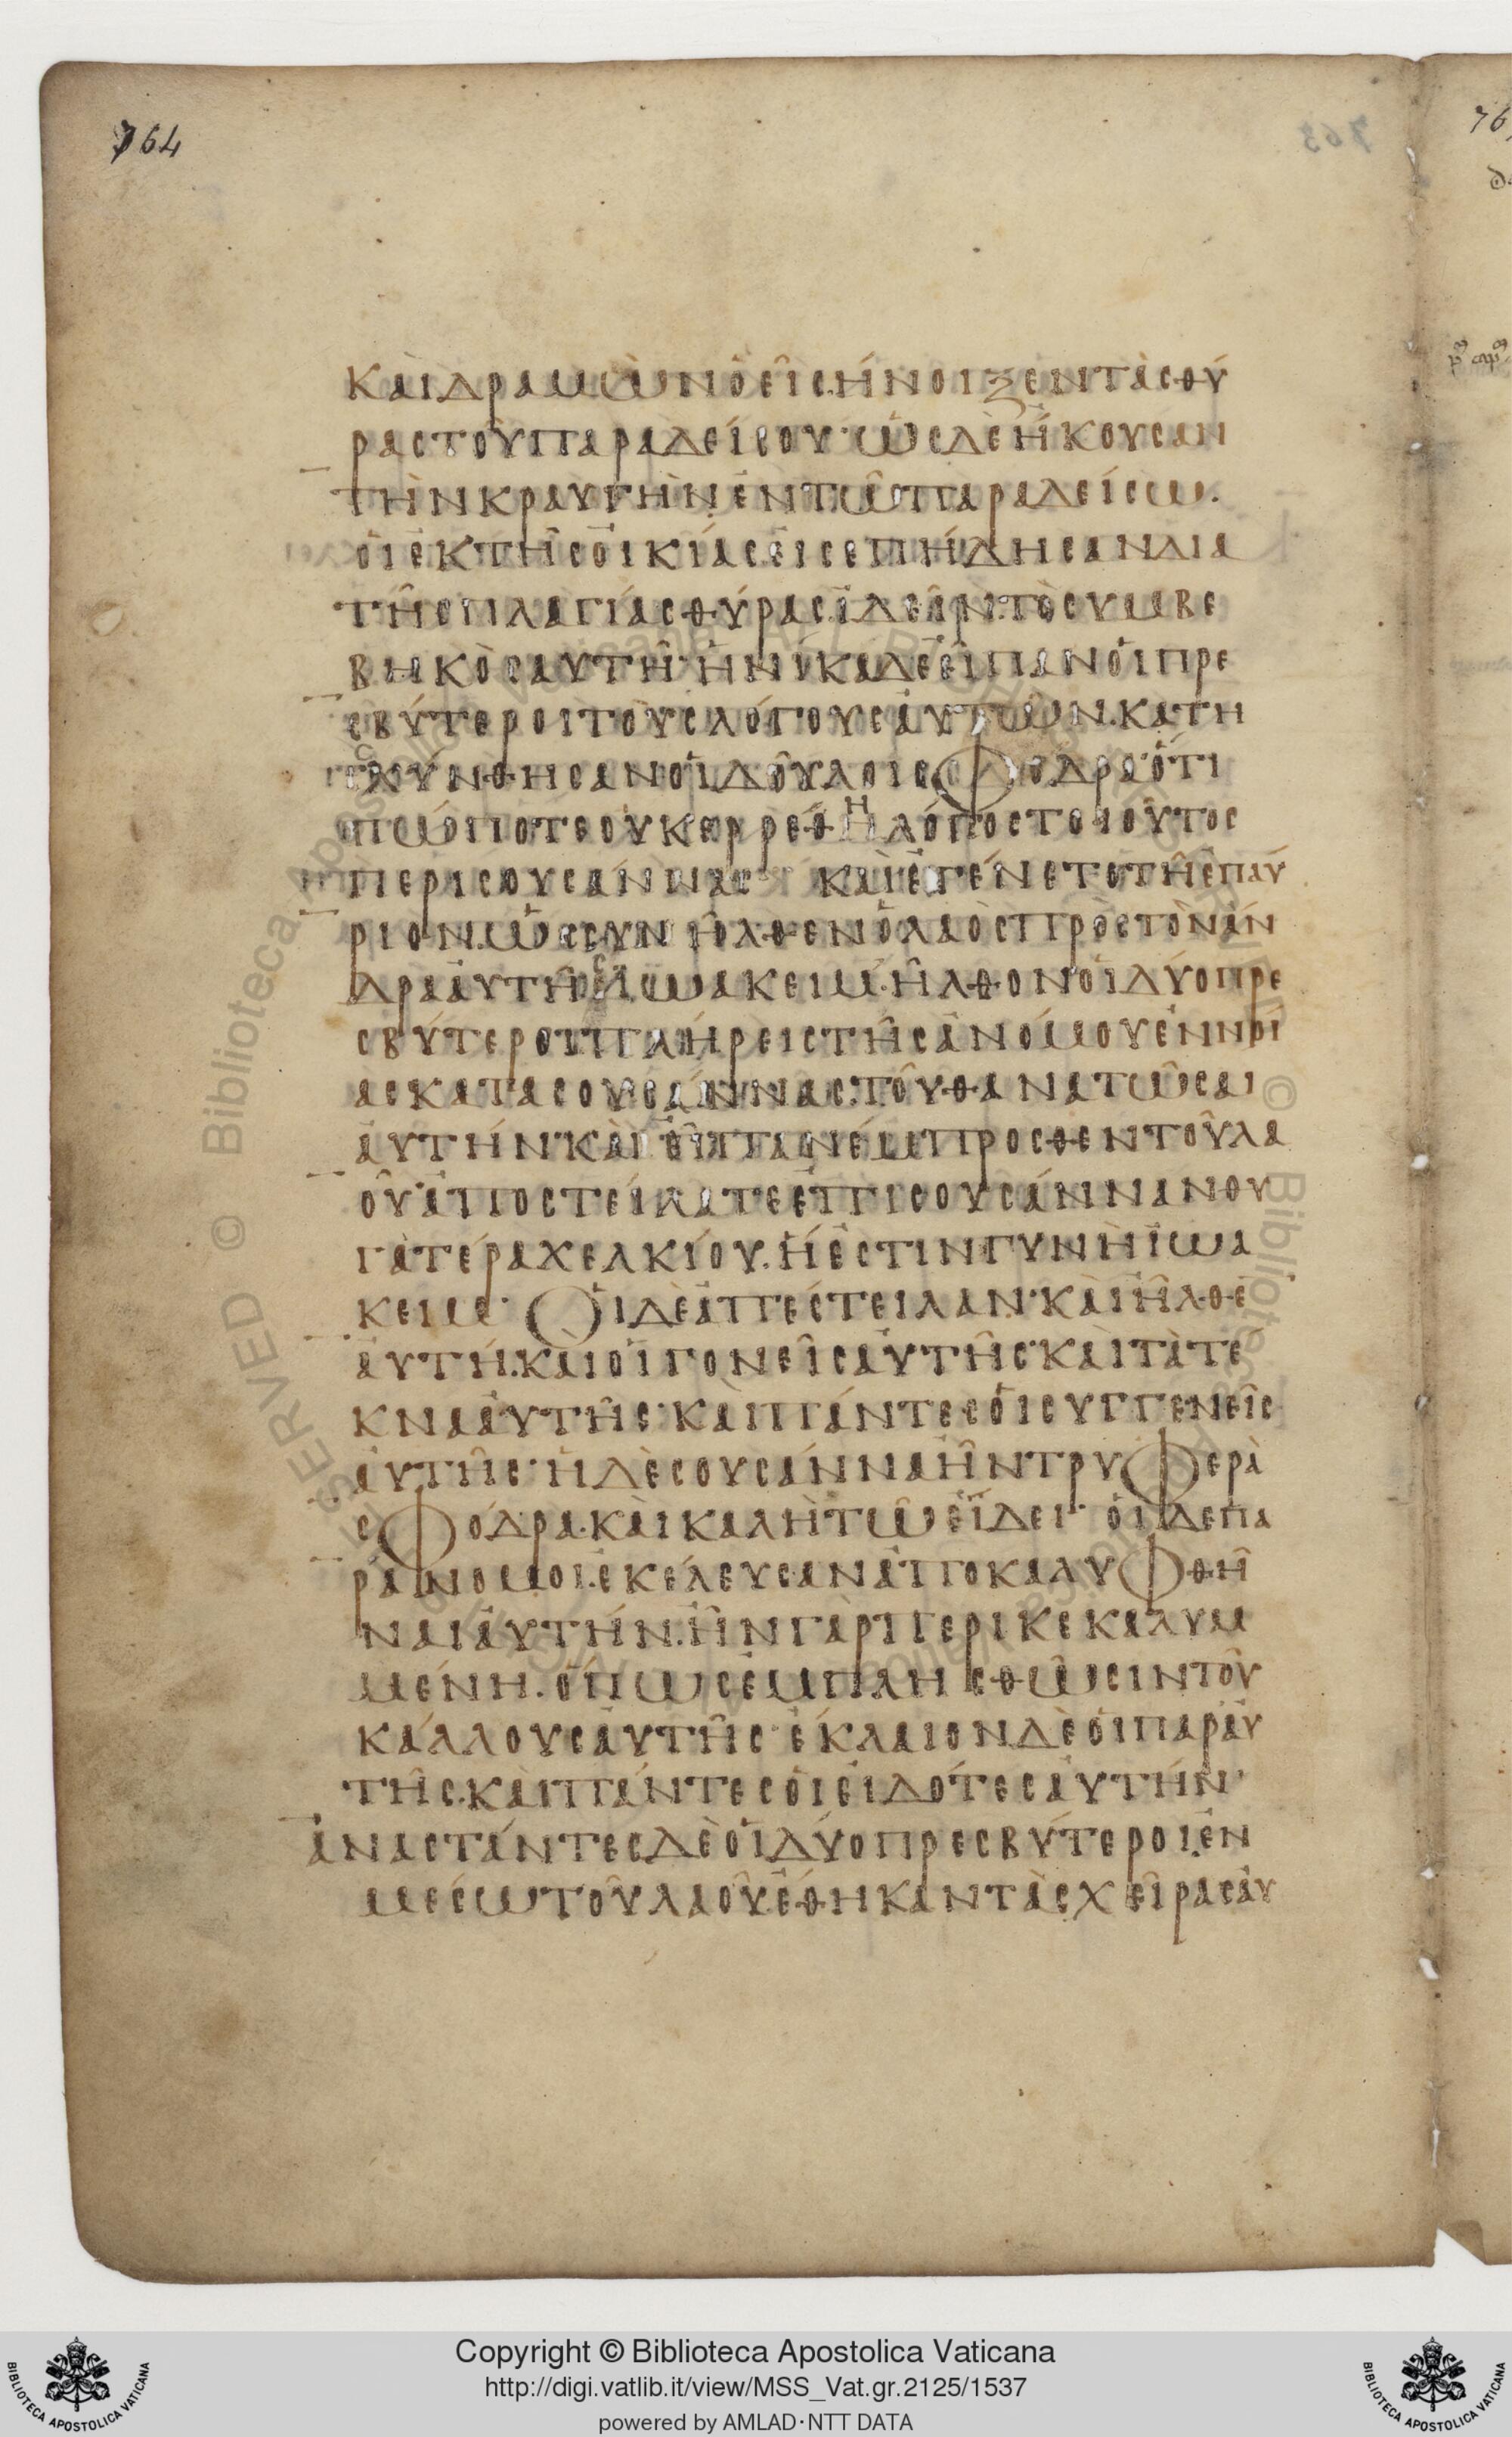 764
763
76
ΚΑῚΔΡΑΜῺΝὉΕἿϹΉΝΟΙΞΕΝΤᾺϹΘΎ
ΡΑϹΤΟΥ͂ΠΑΡΑΔΕΊϹΟΥ·ὩϹΔῈἬΚΟΥϹΑΝ
ΤῊΝΚΡΑΥΓῊΝἘΝΤΩ͂ΠΑΡΑΔΕΊϹΩ.
ὉΙἘΚΤΗ͂ϹὈΙΚΊΑϹἘΙϹΕΠΉΔΗϹΑΝΔΙΑ
ΤΗ͂ϹΠΛΑΓΊΑϹΘΎΡΑϹ.ἸΔΕΙ͂Ν.ΤῸϹΥΜΒΕ
ΒΗΚῸϹΑΥΤΗ͂·ἩΝΊΚΑΔΕἘΙ͂ΠΑΝὉΙΠΡΕ
ϹΒΎΤΕΡΟΙΤΟῪϹΛΌΓΟΥϹἈΥΤΩ͂Ν.ΚΑΤΗ
ϹΧΎΝΘΗϹΑΝΟἹΔΟΥ͂ΛΟΙϹΦΟΔΡΑ·ὍΤΙ
ΠΏΠΟΤΕΟΥΚΕΡΡΈΘΗΛΌΓΟϹΤΟΙΟΥ͂ΤΟϹ
ΠΕΡΙϹΟΥϹΆΝΝΑϹ· ΚΑῚἘΓΈΝΕΤΟΤΗ͂ἘΠΑΎ
ΡΙΟΝ.ὩϹϹΥΝΗ͂ΛΘΕΝὉΛΑῸϹΠΡῸϹΤῸΝἌΝ
ΔΡΑἈΥΤΗ͂ϹἸΩΑΚΕΙΜ·Η͂ΛΘΟΝΟἹΔΎΟΠΡΕ
ϹΒΎΤΕΡΟΙΠΛΉΡΕΙϹΤΗ͂ϹἈΝΌΜΟΥἘΝΝΟΊ
ΑϹΚΑΤΑϹΟΥϹΆΝΝΑϹ.ΤΟΥ͂ΘΑΝΑΤΩ͂ϹΑΙ
ἈΥΤΉΝ·ΚΑῚἘΙ͂ΠΑΝἜΜΠΡΟϹΘΕΝΤΟΥ͂ΛΑ
ΟΥ͂·ἈΠΟϹΤΕΊΛΑΤΕἘΠῚϹΟΥϹΆΝΝΑΝΘΥ
ΓΑΤΈΡΑΧΕΛΚΊΟΥ.ἭἘϹΤΙΝΓΥΝῊἸΩΑ
ΚΕΙΜ· ὉΙΔῈἈΠΈϹΤΕΙΛΑΝ·ΚΑῚΗ͂ΛΘΕ
ἈΥΤΉ.ΚΑῚΟἹΓΟΝΕΙ͂ϹἈΥΤΗ͂Ϲ·ΚΑῚΤᾺΤΕ
ΚΝΑἈΥΤΗ͂Ϲ·ΚΑῚΠΆΝΤΕϹὉΙϹΥΓΓΕΝΕΙ͂Ϲ
ἈΥΤΗ͂Ϲ·ἩΔῈϹΟΥϹΆΝΝΑΗ͂ΝΤΡΥΦΕΡᾺ
ϹΦΌΔΡΑ.ΚΑῚΚΑΛῊΤΩ͂ΕἼΔΕΙ· ὉΙΔΕΠΑ
ΡΆΝΟΜΟΙ.ἘΚΈΛΕΥϹΑΝἈΠΟΚΑΛΥΦΘΗ͂
ΝΑΙἈΥΤΉΝ.Η͂ΝΓᾺΡΠΕΡΙΚΕΚΑΛΥΜ
ΜΈΝΗ.ὍΠΩϹἘΜΠΛΗϹΘΩ͂ϹΙΝΤΟΥ͂
ΚΆΛΛΟΥϹἈΥΤΗ͂Ϲ·ἘΚΛΑΙΟΝΔῈὉΙΠΑΡΑΥ
ΤΗ͂Ϲ.ΚΑῚΠΆΝΤΕϹὉΙἘΙΔΌΤΕϹἈΥΤΉΝ·
ἈΝΑϹΤΆΝΤΕϹΔῈΟἹΔΎΟΠΡΕϹΒΎΤΕΡΟΙ.ἘΝ
ΜΈϹΩΤΟΥ͂ΛΑΟΥ͂.ἜΘΗΚΑΝΤᾺϹΧΕΙ͂ΡΑϹἈΥ
Copyright © Biblioteca Apostolica Vaticana
http://digi.vatlib.it/view/MSS_Vat.gr.2125/1537
powered by AMLAD·NTT DATA
BIBLIOTECA APOSTOLICA VATICANA
BIBLIOTECA APOSTOLICA VATICANA